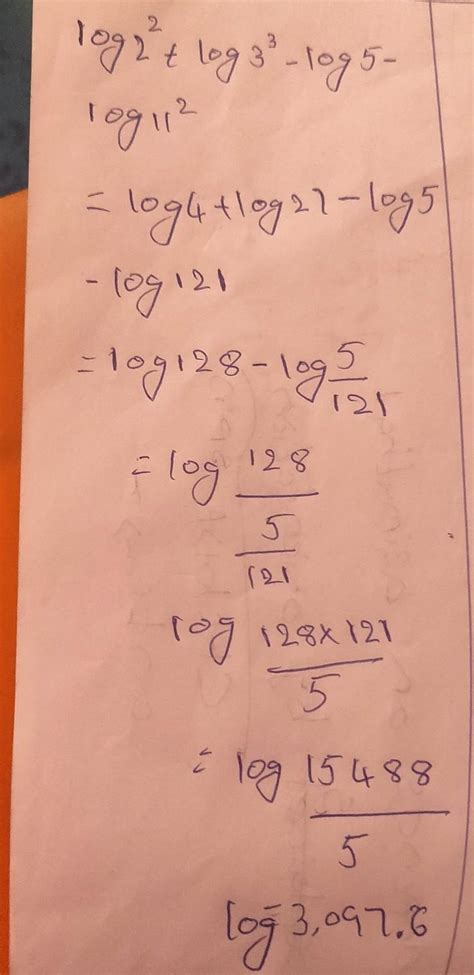 log2² + log3³ - log5 -
log11²
= log4 + log27 - log5
- log121
= log128 - log 5/121
= log 128
5
121
log 128x121
5
= log 15488
5
log 3,097.6